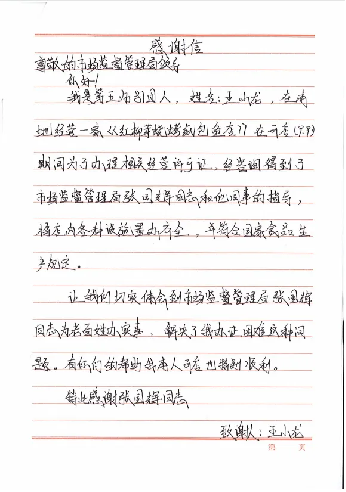 感谢信
尊敬的市场监督管理局领导
你好!
我是第五师团人，姓名：王小龙，在
地经营一家 红柳 烤 包 店 在开店
期间为了办理相关经营许可证，经 得到了
市场监督管理局张国辉同志和他同事的指导，
将店内各种设施 办齐全，并符合国家食品生
产规定。
让我们切实体会到市场监督管理局张国辉
同志为老百姓办实事，解决了我办证困难这种问
题。有你们的帮助我本人开店也特别顺利。
特此感谢张国辉同志
致谢人：王小龙
第 页